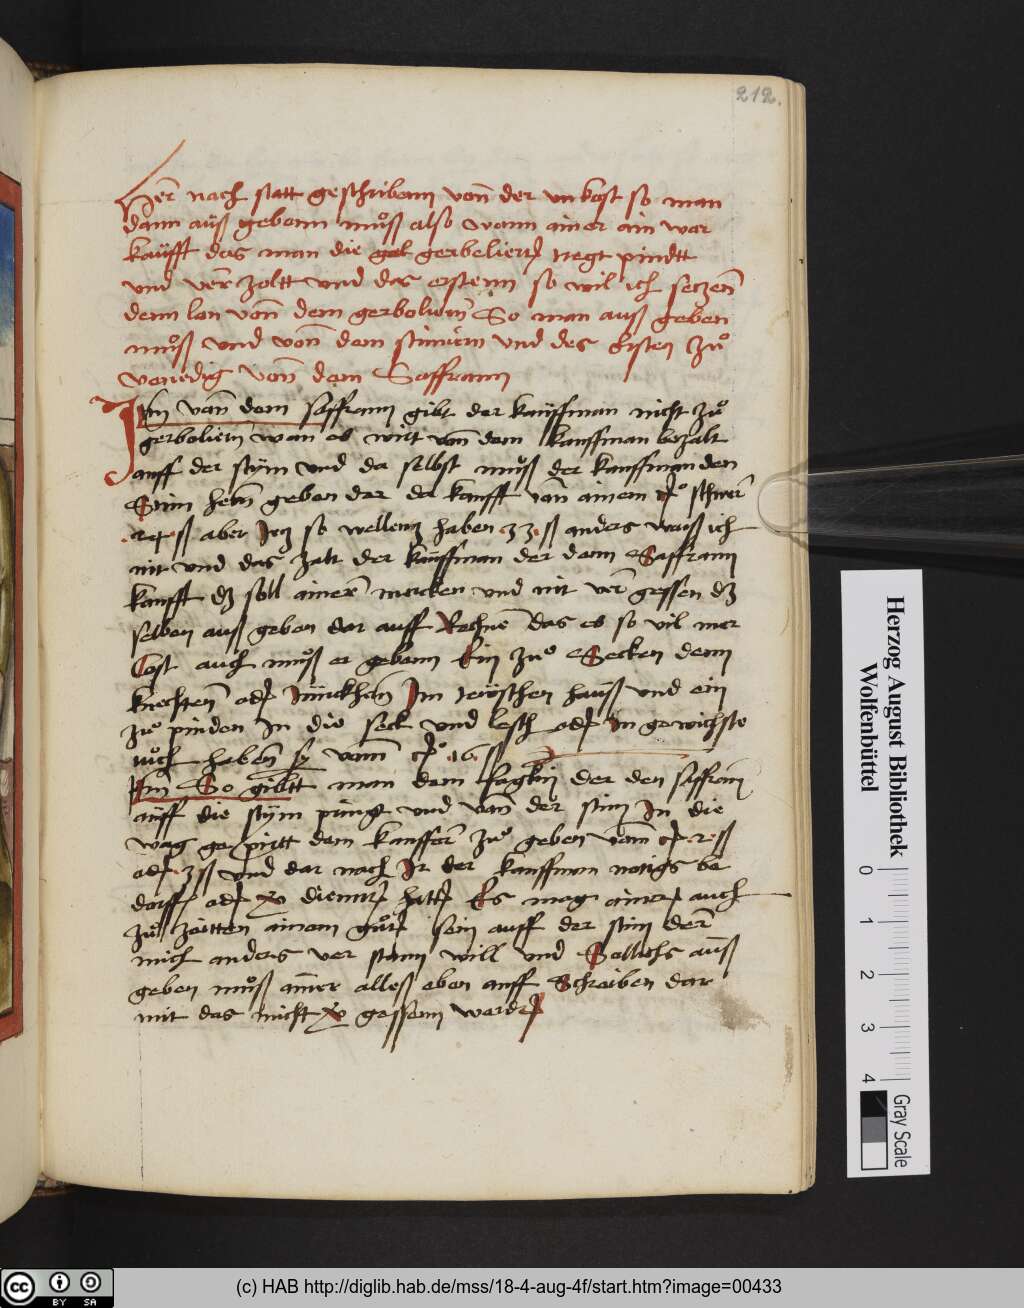 212.
Her nach statt geschribenn vonn der unkost so man
dann auß gebenn muoß also Wann ainer ain war
kaufft das man die gerbeliertt wegt pindtt
und verzoltt und das erstenn so wil ich seczenn
denn lon vonn dem gerboliern So man auß geben
muoß und vonn dem und des zuo
venedig vonn dem Saffrann
Itm vann dem saffrann gibt der kauffman nicht zuo
gerboliern wan es wirt vonn dem kauffman bezalt
auff der stym und da selbst muoß der kauffman den
Stim hern geben der da kaufft vonn ainem schwer
ß aber so wellenn haben 33 ß anders waiß ich
nit und das zalt der kauffman der denn Saffrann
kaufft dz soll ainer mercken und nit ver gessen dz
selben auß geben dar auff Rechne das es so vil mer
Cost auch muoß er gebenn zuo Secken denn
knechten im teutschen hauß und ein
zuo pinden in die seck und in gewichste
tuoch haben vonn 16 ß
Itm So gibtt man dem der den saffrann
auff die stym pringt und vonn der stim In die
wag ge pirtt dem kauffer zuo geben vonn 2 ß
oder 3 ß und dar nach Ir der kauffman be
darff oder diennt hatt Es mag ainer auch
zuo zeitten ainem sein auff der stim der
mich anders ver stann will und Sollichs auß
geben muoß ainer alleß eben auff Schreiben dar
mit das nicht gessenn werd
Herzog August Bibliothek
Wolfenbüttel
0 1 2 3 4
Gray Scale
cc BY SA
(c) HAB http://diglib.hab.de/mss/18-4-aug-4f/start.htm?image=00433